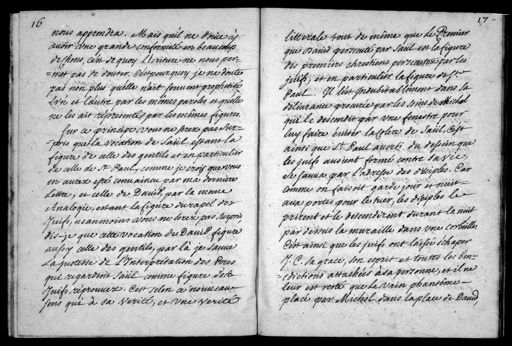 16
nous apprendra. Mais qu'il ne doive y
avoir une grande conformité en beaucoup
de chose, c'en de quoy l'écriture ne nous per-
met pas de douter. C'est pourquoy je ne doute
pas non plus qu'elle n'ait souvent prophétisé
l'un et l'autre par les mêmes paroles et qu'elle
ne les ait représentés par les mêmes figures.
Sur ce principe vous ne serez pas sur-
pris que la vocation de Saül, estant la
figure de celle des gentils et en particulier
de celle de St Paul, comme je crois que vous
en aurez esté convaincu par ma derniere
lettre, et celle de David par la meme
Analogie, estant la figure du rapel des
Juifs, neanmoins vous ne serez pas surpris
dis-je que cette vocation de David figure
aussy celle des gentils, par là je sauve
la justesse de l'Interpretation des Peres
qui regardent Saül comme figure des
Juifs reprouvés. C'est selon à nous au-
tems qui à sa verité, et une verité
17
litterale tout de même que le Premier
que David persecuté par Saül est la figure
des premiers chrestiens persecutés par les
juifs, et en particulier la figure de St
Paul. Il l'est indubitablement dans la
délivrance procurée par les soins de Michol
qui le descendit par une fenestre pour
luy faire éviter la colere de Saül. C'est
ainsi que St Paul averti du dessein que
les juifs avoient formé contre sa vie,
se sauva par l'adresse des disciples. Car
comme on faisoit garde jour et nuit
aux portes pour le tuer, les disciples le
prirent et le descendirent durant la nuit
par dessus la muraille dans une corbeille.
C'est ainsi que les juifs ont laissé échaper
J. C. sa grace, son esprit et toutes les ben-
edictions attachées à sa personne, et il ne
leur est resté que le vain phantôme
placé par Michol dans la place de David,